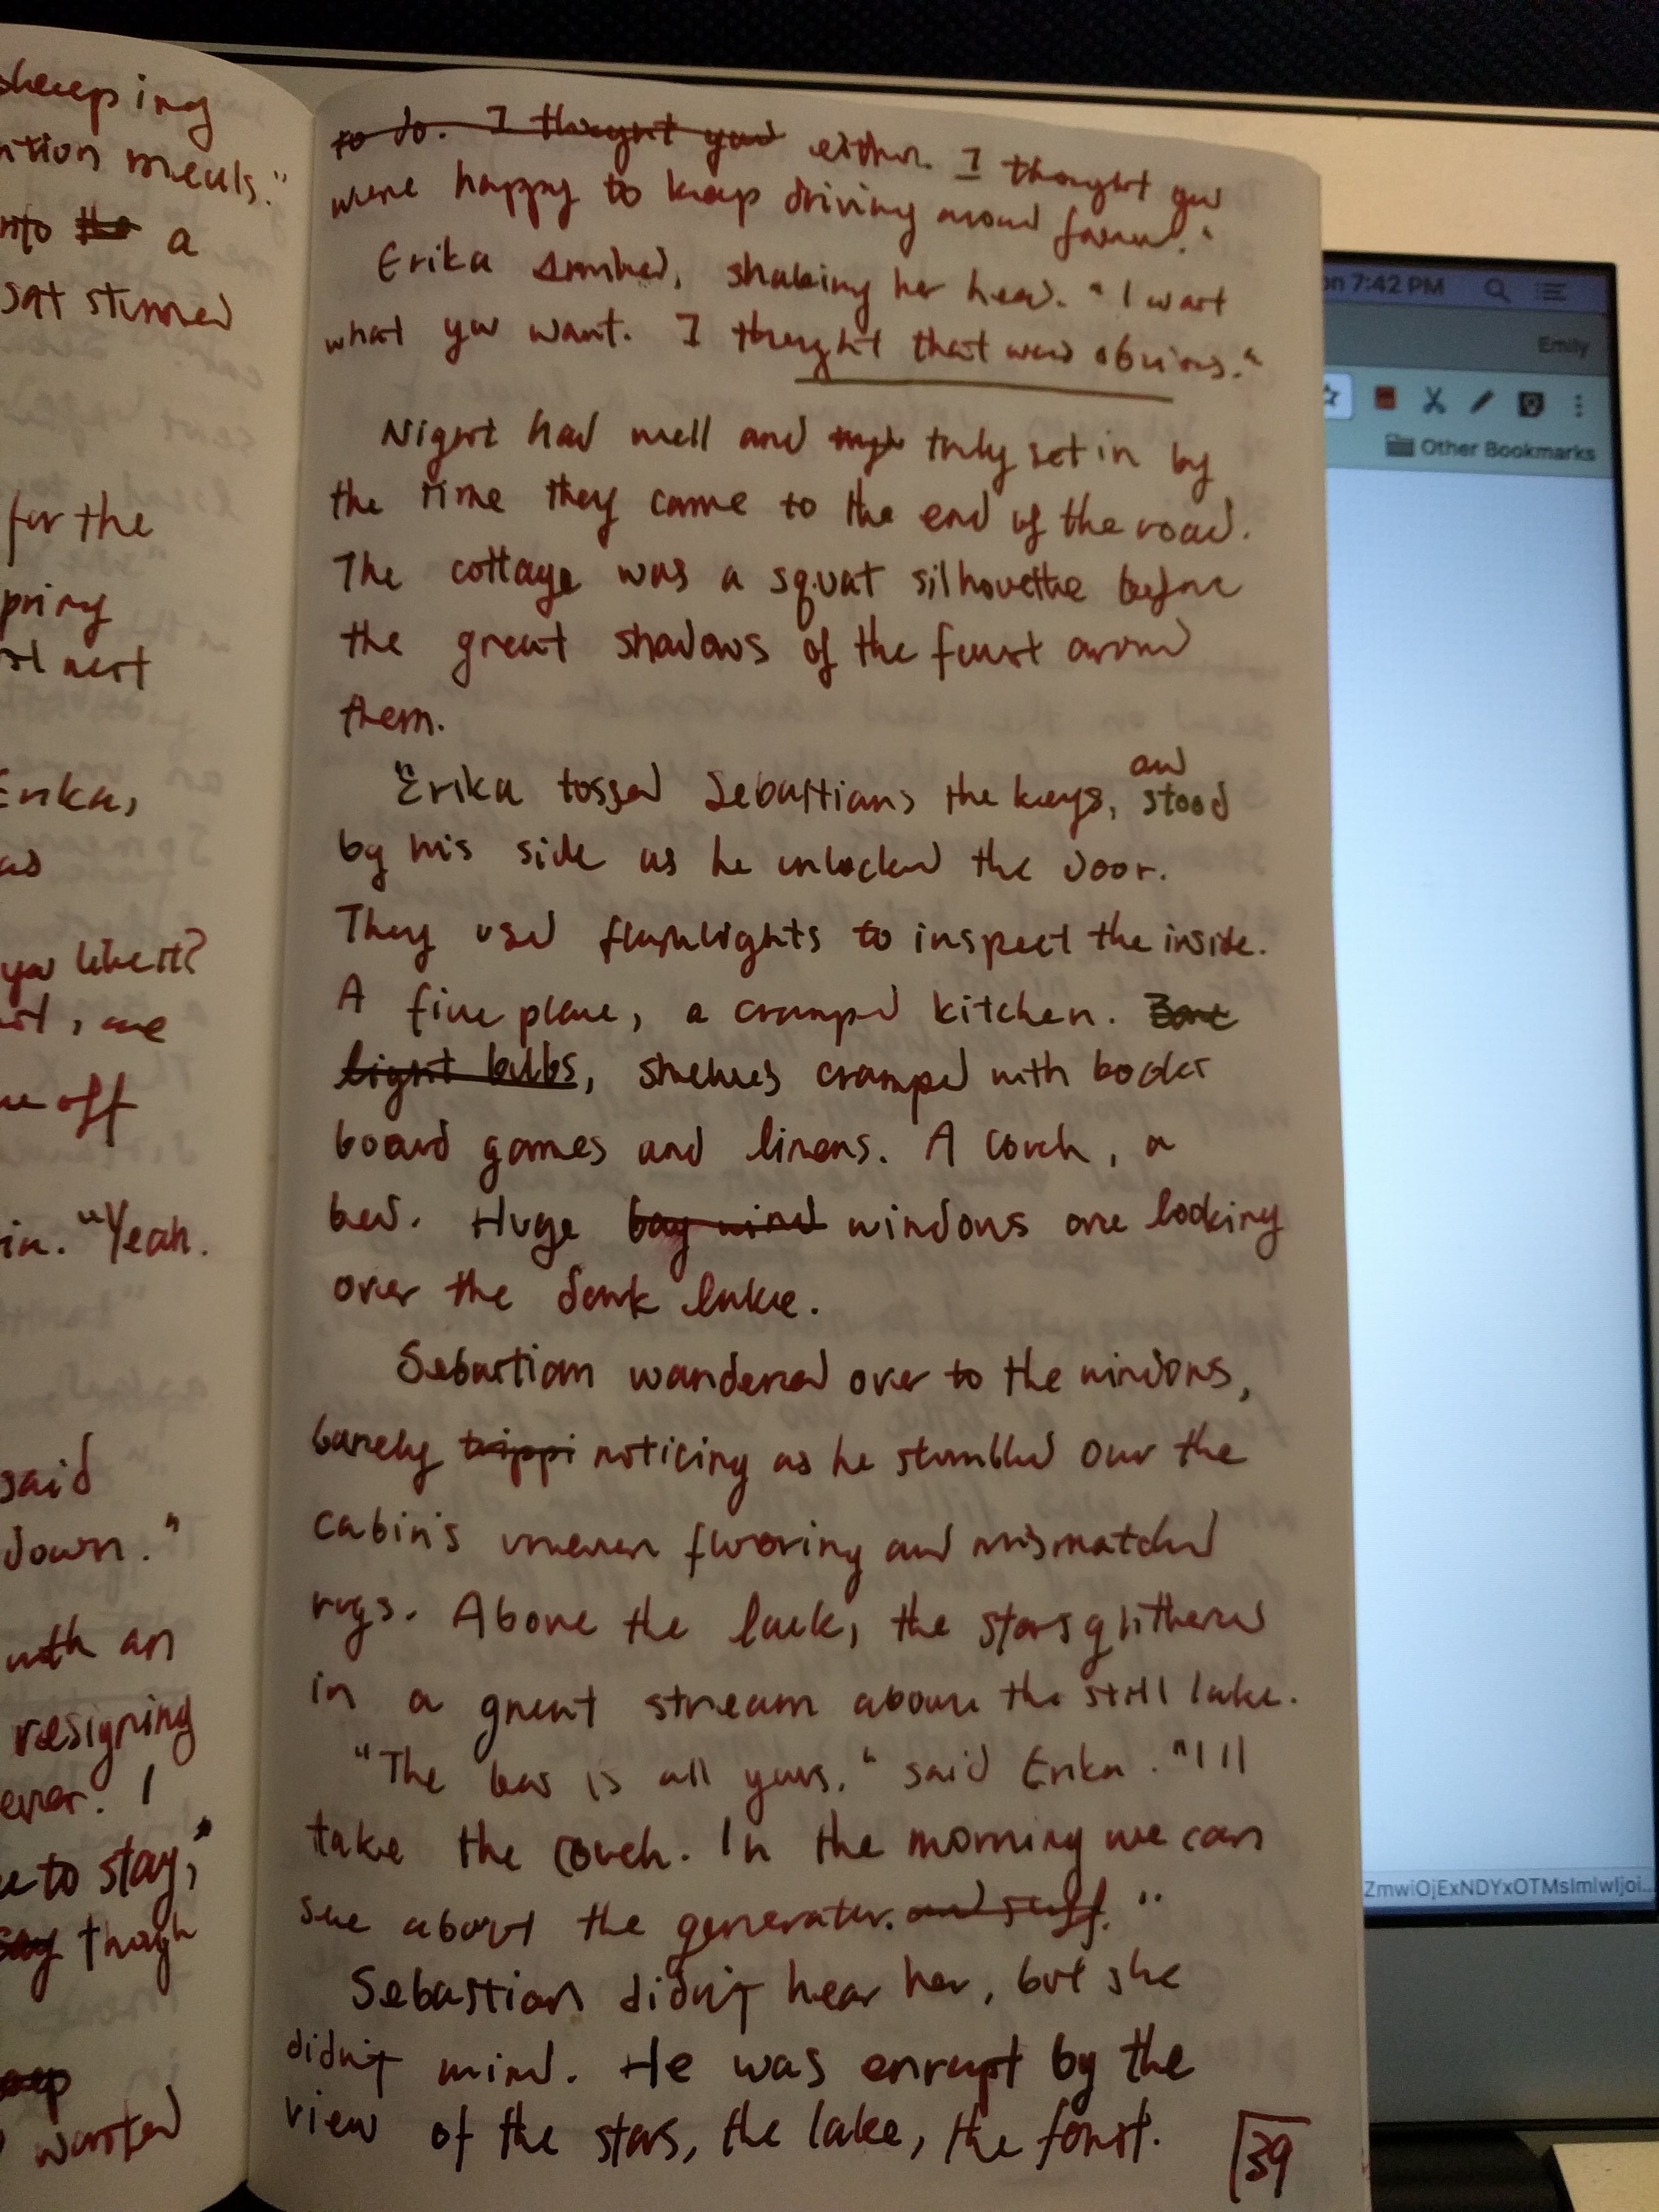 sleeping
ition meals."
into the a
sat stunned
for the
pring
st next
Erika,
as
you like it?
, we
off
in. "Yeah.
said
down."
with an
resigning
ever. I
to stay,"
say though
wanted
to do. I thought you either. I thought you
were happy to keep driving around forever."
Erika smiled, shaking her head. "I want
what you want. I thought that was obvious."
Night had well and truly set in by
the time they came to the end of the road.
The cottage was a squat silhouette before
the great shadows of the forest around
them.
"Erika tossed Sebastians the keys, and stood
by his side as he unlocked the door.
They used flashlights to inspect the inside.
A fire place, a cramped kitchen. Bare
light bulbs, shelves cramped with books
board games and linens. A couch, a
bed. Huge bay wind windows are looking
over the dark lake.
Sebastian wandered over to the windows,
barely trippi noticing as he stumbled over the
cabin's uneven flooring and mismatched
rugs. Above the lack, the stars glittered
in a great stream above the still lake.
"The bed is all yours," said Erika. "I'll
take the couch. In the morning we can
see about the generator. and stuff."
Sebastian didn't hear her, but she
didn't mind. He was enrapt by the
view of the stars, the lake, the forest.
39
on 7:42 PM
Emily
Other Bookmarks
ZmwiOjExNDYxOTMsImlwIjoi...